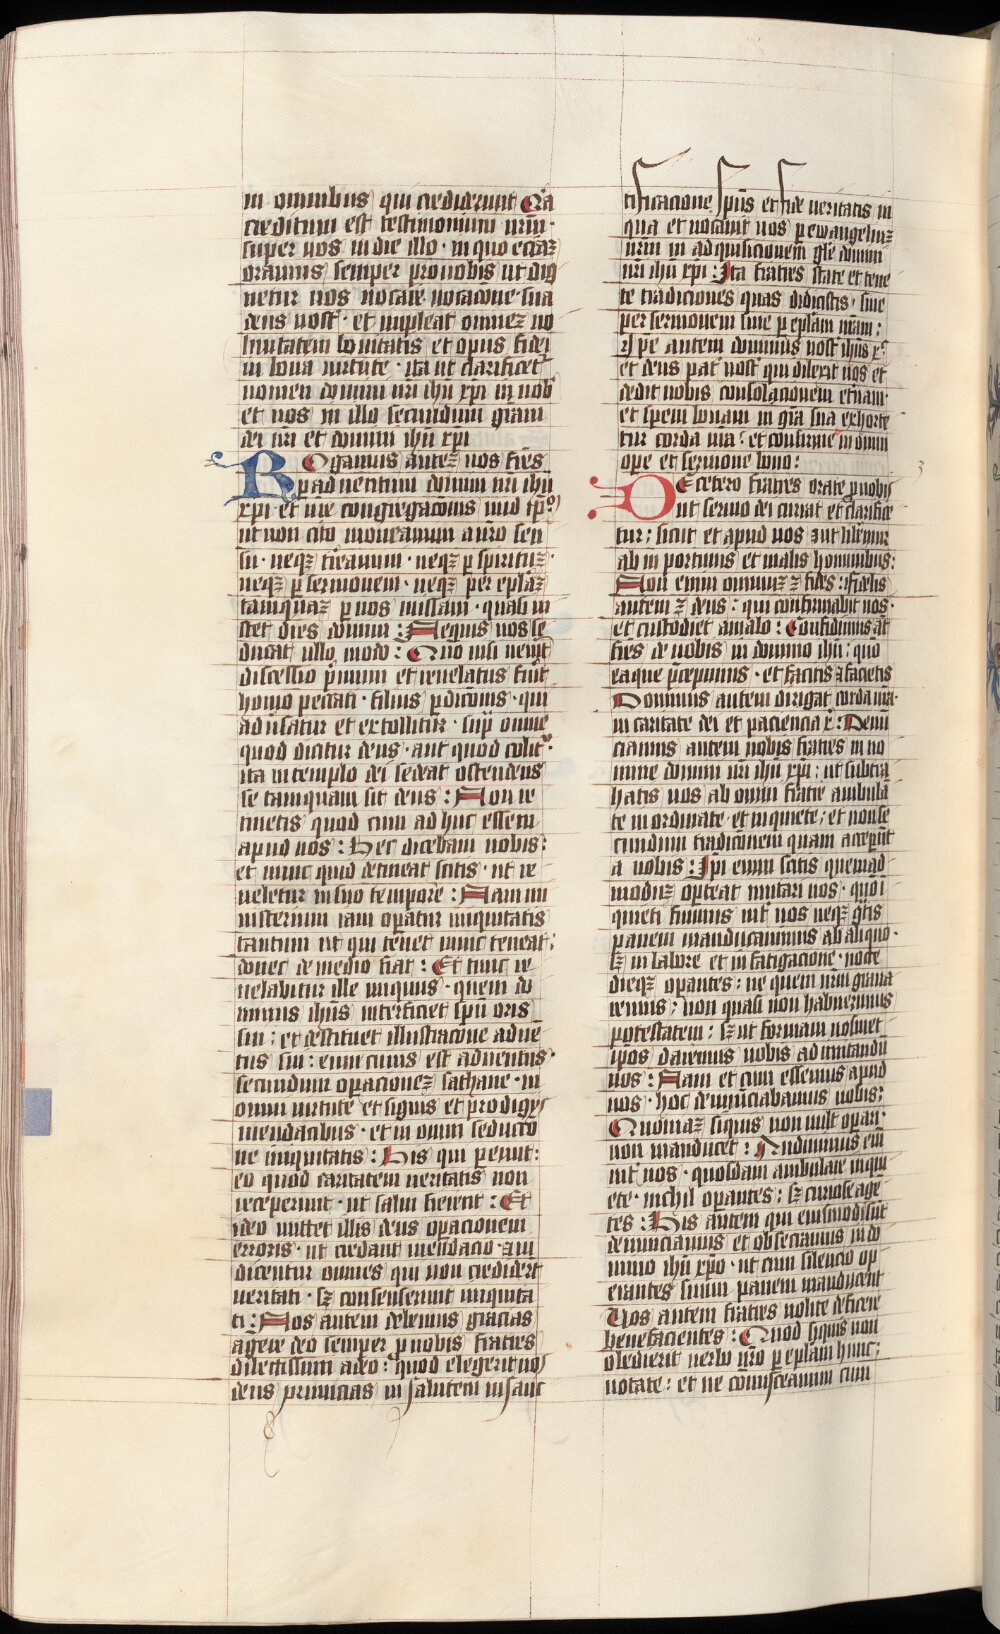 in omnibus qui crediderunt Q̄a
creditum est testimonium nr̄m·
super vos in die illo · in quo eciaꝫ
oramus semper pro nobis ut dig
netur vos vocare vocac̄one sua
deus nost̄ · et impleat omneꝫ vo
luntatem bonitatis et opus fidei
in bona virtute · ita ut clarificet̄
nomen domini nr̄i ihū xp̄i in nob̄
et vos in illo secundum gr̄am
dei nr̄i et domini ihū xp̄i
ROgamus auteꝫ vos fr̄es
p adventum domini nr̄i ihū
xp̄i · et nr̄e congregac̄onis in id ip̄m
ut non cito moveamini a vr̄o sen
su · neqꝫ tireamini · neqꝫ ꝑ spirituꝫ·
neqꝫ ꝑ sermonem · neqꝫ per epl̄aꝫ
tamquaꝫ ꝑ nos missam · quasi in
stet dies domini : Nequis vos se
ducat ullo modo : Qn̄o nisi venerit
discessio p̄mum et revelatus fuit̄
homo peccati · filius ꝑdic̄onis · qui
adv̄satur et extollitur · sup̄ omne
quod dicitur deus · aut quod colit̄·
ita in templo dei sedeat ostendens
se tamquam sit deus : Non re
tinetis quod cum ad huc essem
apud vos : Hec dicebam vobis:
et nunc quid detineat scitis · ut re
veletur in suo tempore : Nam mi
nisterium iam op̄atur iniquitatis
tantum ut qui tenet nunc teneat:
donec de medio fiat : Et tunc re
velabitur ille iniquus · quem do
minus ihūs interficiet sp̄u oris
sui : et destituet illustrac̄one adve
tus sui : eum cuius est adventus·
secundum op̄acioneꝫ sathane · in
omni virtute et signis et prodigijs
mendacibus · et in omni seductō
ne iniquitatis : His qui ꝑeunt:
eo quod caritatem veritatis non
receperunt · ut salvi fierent : Et
ideo mittet illis deus op̄acionem
erroris · ut credant mendacio · ⁊ iu
dicentur omnes qui non credider̄t
veritati · sꝫ consenserunt iniquita
ti : Nos autem debemus gracias
agere deo semper ꝓ vobis fratres
dilectissimi a deo : quod elegerit nos
deus primitias in salutem in sanc
tificacione sp̄us et fide veritatis in
qua et vocavit vos ꝑ ewangeliuꝫ
nr̄m in adquisicionem gl̄e domini
nr̄i ihū xp̄i : Ita fratres state et tene
te tradiciones quas didicistis · sive
per sermonem sive ꝑ epl̄am nr̄am:
Ipe autem dominus nost̄ ihūs x̄·
et deus pat̄ nost̄ qui dilexit nos et
dedit nobis consolacionem et̄nam·
et spem bonam in gr̄a sua exhorte
tur corda vr̄a : et confirmet in omni
ope et sermone bono:
DE cetero fratres orate ꝓ nobis
ut sermo dei currat et clarifice
tur : sicut et apud vos ⁊ ut lib̄emur
ab in portunis et malis hominibus:
Non enim omniuꝫ ꝫ fides : fidelis
autem ꝫ deus : qui confirmabit vos·
et custodiet a malo : Confidimus at̄
fr̄es de vobis in domino ihū : quō
ea que p̄cepimus · et facitis ⁊ facietis
Dominus autem dirigat corda vr̄a·
in caritate dei et paciencia x̄ : Denū
ciamus autem vobis fratres in no
mine domini nr̄i ihū xp̄i : ut subtra
hatis vos ab omni fratre ambulā
te inordinate et inquiete ; et non se
cundum tradic̄onem quam acceper̄t
a nobis : Ip̄i enim scitis quemad
moduꝫ oporteat imitari nos · quō ī
quieti fuimus int̄ vos neqꝫ gr̄tis
panem manducavimus ab aliquo·
sꝫ in labore et in fatigacione · nocte
dieqꝫ op̄antes : ne quem vr̄m grava
remus ; non quasi non habuerimus
potestatem : sꝫ ut formam nosmet
ip̄os daremus vobis ad imitandū
nos : Nam et cum essemus apud
vos · hoc denunciabamus vobis:
Quoniaꝫ siquis non vult op̄ari·
non manducet : Audivimus eīn
int̄ vos · quosdam ambulare inqui
ete · nichil op̄antes ; sꝫ curiose agē
tes : His autem qui eiusmodi sūt
denunciamus et obsecramus in do
mino ihū xp̄o · ut cum silencio op
erantes suum panem manducent
Vos autem fratres nolite deficere
benefacientes : Quod siquis non
obedierit verbo nr̄o ꝑ epl̄am hunc;
notate : et ne com̄isceamini cum